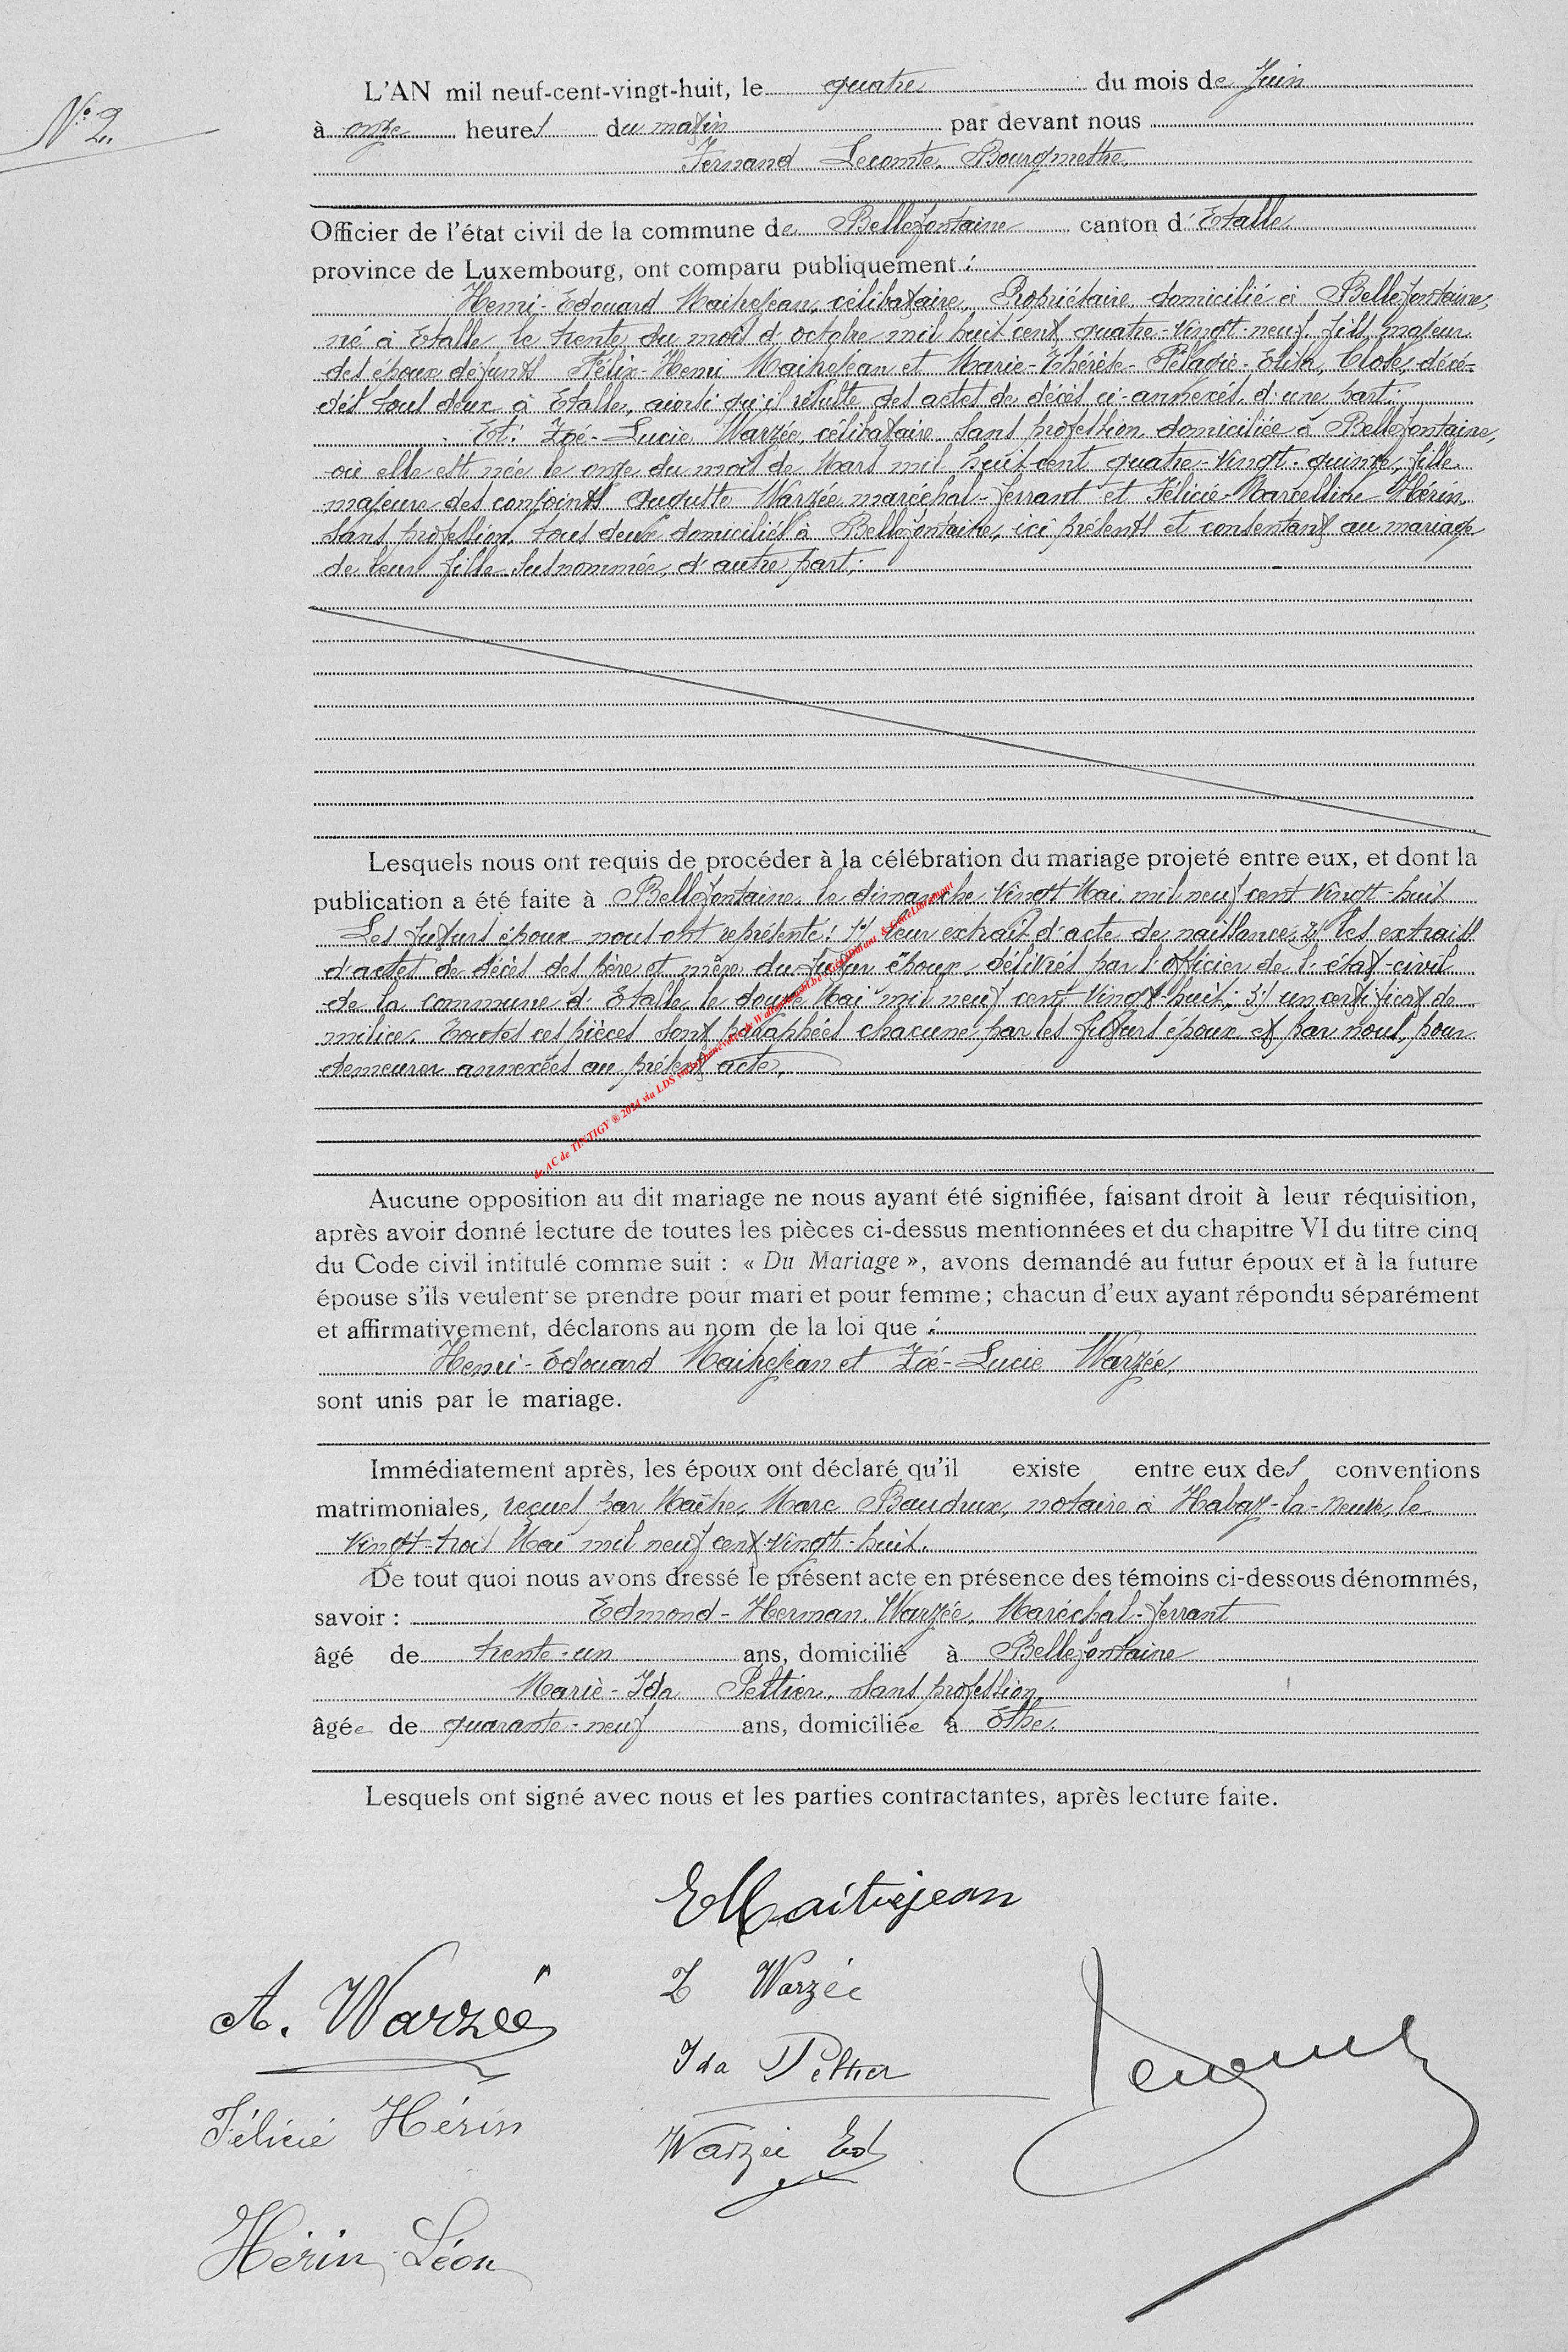 N° 2.
L'AN mil neuf-cent-vingt-huit, le quatre du mois de Juin
à onze heures du matin par devant nous
Fernand Lecomte, Bourgmestre,
Officier de l'état civil de la commune de Bellefontaine canton d'Etalle
province de Luxembourg, ont comparu publiquement :
Henri-Edouard Maitrejean, célibataire, Propriétaire, domicilié à Bellefontaine,
né à Etalle le trente du mois d'octobre mil huit cent quatre-vingt-neuf, fils majeur
des époux défunts Félix-Henri Maitrejean et Marie-Thérèse-Pélagie-Elisa, décé-
dés tous deux à Etalle, ainsi qu'il résulte des actes de décès ci-annexés, d'une part;
Et: Zoé-Lucie Warzée, célibataire, sans profession, domiciliée à Bellefontaine,
où elle est née le onze du mois de Mars mil huit cent quatre-vingt-quinze, fille
majeure des conjoints Auguste Warzée, maréchal-ferrant et Félicie-Marcelline Hérin,
sans profession, tous deux domiciliés à Bellefontaine, ici présents et consentant au mariage
de leur fille susnommée, d'autre part;
Lesquels nous ont requis de procéder à la célébration du mariage projeté entre eux, et dont la
publication a été faite à Bellefontaine le dimanche vingt Mai mil neuf cent vingt-huit
Les futurs époux nous ont représenté: 1°/ leur extrait d'acte de naissance; 2°/ les extraits
d'actes de décès des père et mère du futur époux, délivrés par l'officier de l'état-civil
de la commune d'Etalle le douze Mai mil neuf cent vingt-huit; 3°/ un certificat de
milice. Toutes ces pièces sont paraphées chacune par les futurs époux et par nous, pour
demeurer annexées au présent acte.
de AC de TINTIGY ® 2024 via LDS
Aucune opposition au dit mariage ne nous ayant été signifiée, faisant droit à leur réquisition,
après avoir donné lecture de toutes les pièces ci-dessus mentionnées et du chapitre VI du titre cinq
du Code civil intitulé comme suit : « Du Mariage », avons demandé au futur époux et à la future
épouse s'ils veulent se prendre pour mari et pour femme ; chacun d'eux ayant répondu séparément
et affirmativement, déclarons au nom de la loi que :
Henri-Edouard Maitrejean et Zoé-Lucie Warzée,
sont unis par le mariage.
Immédiatement après, les époux ont déclaré qu'il existe entre eux des conventions
matrimoniales, reçues par Maître Marc Baudrux, notaire à Habay-la-Neuve, le
vingt-trois Mai mil neuf cent vingt-huit.
De tout quoi nous avons dressé le présent acte en présence des témoins ci-dessous dénommés,
savoir : Edmond-Herman Warzée, Maréchal-ferrant
âgé de trente-un ans, domicilié à Bellefontaine
Marie-Ida Peltier, sans profession,
âgée de quarante-neuf ans, domiciliée à Ethe.
Lesquels ont signé avec nous et les parties contractantes, après lecture faite.
E Maitrejean
A. Warzée
Z Warzée
Ida Peltier
Félicie Hérin
Warzée Ed
Hérin Léon